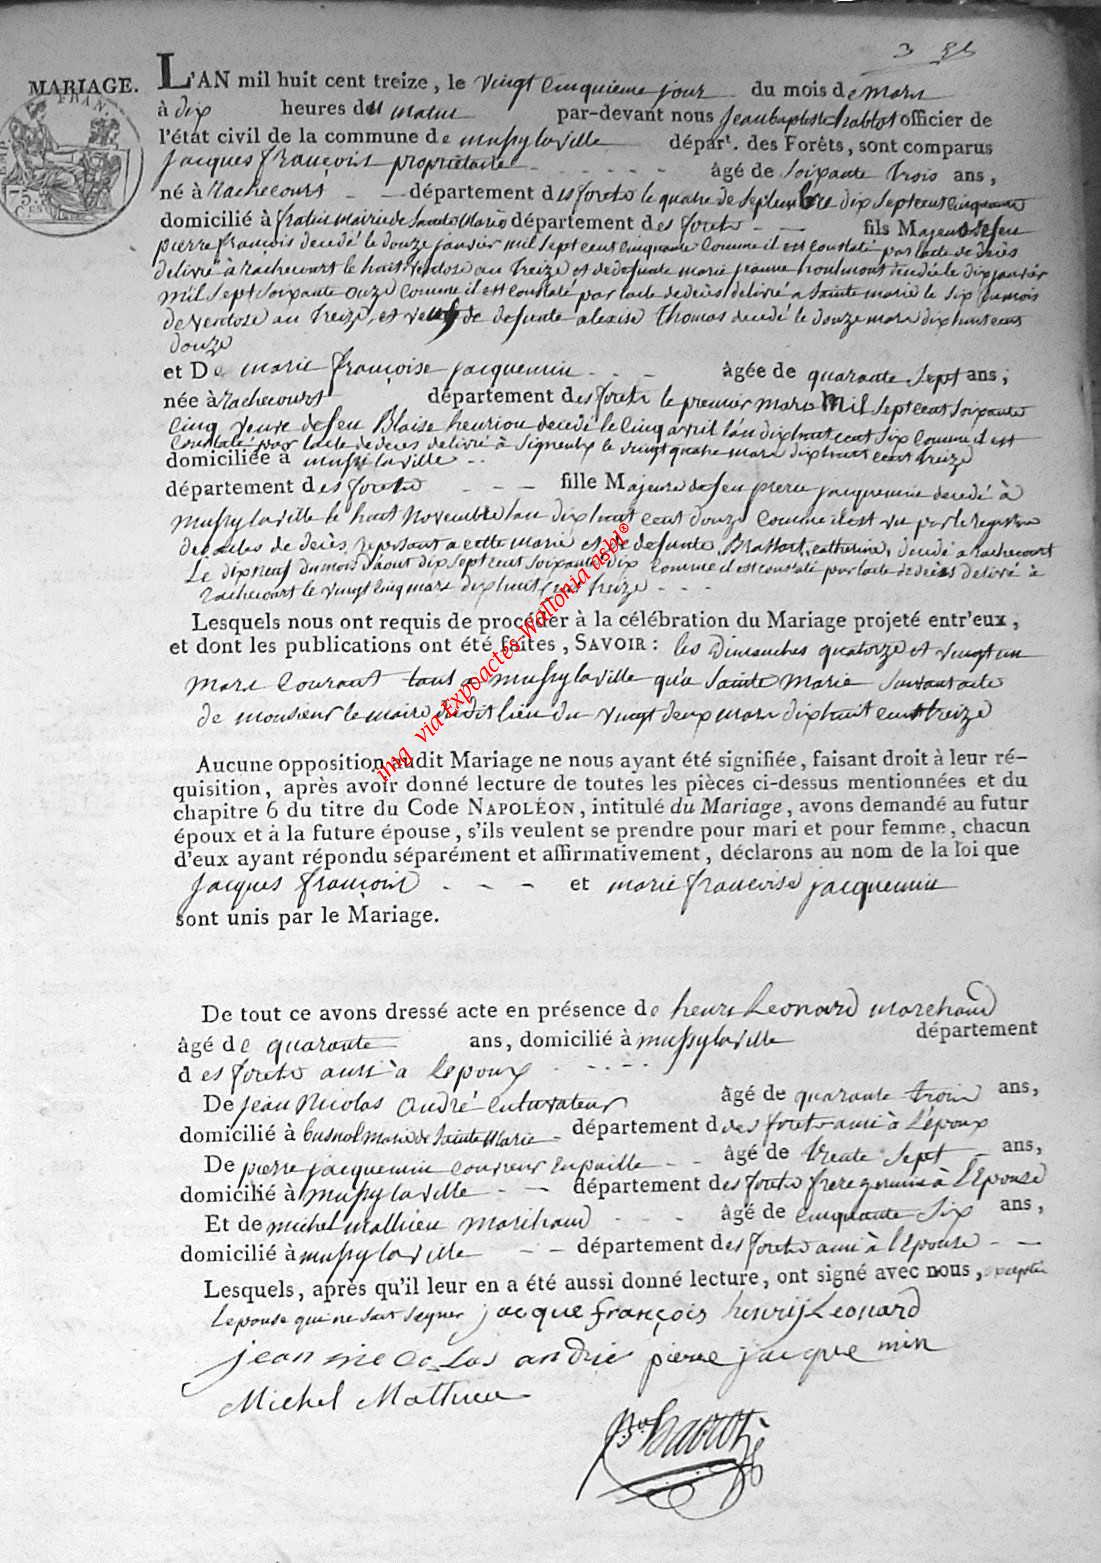 3
MARIAGE.
L'AN mil huit cent treize, le vingt cinquieme jour du mois de mars
à dix heures du matin par-devant nous Jean baptiste officier de
l'état civil de la commune de mussylaville dépar^t. des Forêts, sont comparus
jacques françois propriétaire âgé de soixante trois ans,
né à Rachecourt département des forets le quatre de septembre dix sept cent cinquante
domicilié à fratin mairie de Sainte Marie département des forets fils Majeur de feu
pierre françois decedé le douze janvier mil sept cent cinquante comme il est constaté par lacte de decès
delivré à Rachecourt le huit ventose an treize et de defunte marie jeanne houlmont decedée le dix janvier
mil sept soixante onze comme il est constaté par lacte de decès delivré a Sainte marie le six du mois
de ventose an treize, et veuf de defunte alexise Thomas decedé le douze mars dix huit cent
douze
et De marie françoise jacquemin âgée de quarante sept ans,
née à Rachecourt département des forets le premier mars Mil sept cent soixante
cinq veuve de feu Blaise henrion decedé le cinq avril l'an dix huit cent six comme il est
constaté par lacte de decès delivré à Signeulx le vingt quatre mars dix huit cent treize
domiciliée à mussi laville
département des forets fille Majeure de feu pierre jacquemin decedé à
mussylaville le huit novembre lan dix huit cent douze comme il est vu par le registre
des actes de decès, reposant a cette mairie et de defunte Brassart, catherine, decedé a Rachecourt
Le dix neuf du mois d'aout dix sept cent soixante dix comme il est constaté par lacte de decès delivré à
Rachecourt le vingt cinq mars dix huit cent treize
Lesquels nous ont requis de procéder à la célébration du Mariage projeté entr'eux,
et dont les publications ont été faites, SAVOIR: les Dimanches quatorze et vingt un
Mars Courant tant a mussylaville qu'a Sainte Marie suivant acte
de monsieur le maire dudit lieu du vingt deux mars dix huit cent treize
Aucune opposition audit Mariage ne nous ayant été signifiée, faisant droit à leur ré-
quisition, après avoir donné lecture de toutes les pièces ci-dessus mentionnées et du
chapitre 6 du titre du Code NAPOLÉON, intitulé du Mariage, avons demandé au futur
époux et à la future épouse, s'ils veulent se prendre pour mari et pour femme, chacun
d'eux ayant répondu séparément et affirmativement, déclarons au nom de la loi que
jacques françois et marie francoise jacquemin
sont unis par le Mariage.
De tout ce avons dressé acte en présence de henri Leonard marchand
âgé de quarante ans, domicilié à mussylaville département
des forets ami à Lepoux
De jean Nicolas andré cultivateur âgé de quarante trois ans,
domicilié à mairie de Sainte Marie département des forets ami à L'époux
De pierre jacquemin couvreur en paille âgé de trente sept ans,
domicilié à mussylaville département des forets frere germain à L'Epouse
Et de michel mathieu marchand âgé de cinquante six ans,
domicilié à mussylaville département des forets ami à l'epouse
Lesquels, après qu'il leur en a été aussi donné lecture, ont signé avec nous, excepter
Lepouse qui ne sait signer jacque françois henrij Leonard
jean nicolas andrie pierre jacque min
Michel Mathieu
img via Expoactes-Wallonia asbl®